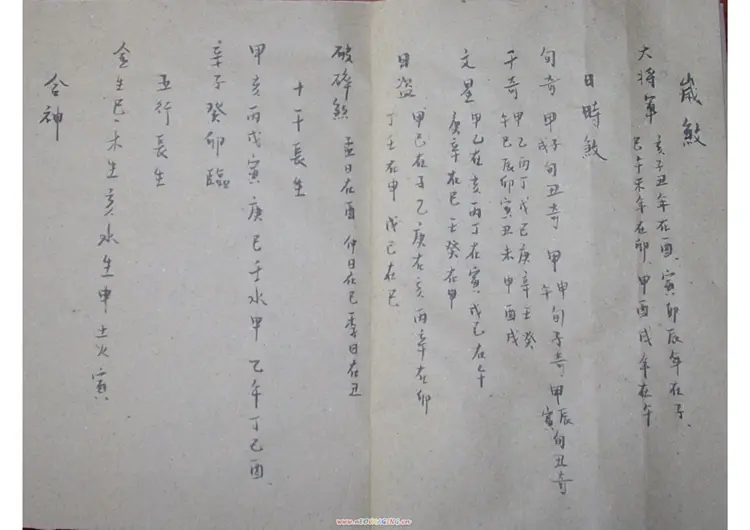 歲煞
大將軍 亥子丑年在酉、寅卯辰年在子、
巳午未年在卯、申酉戌年在午
日時煞
旬奇 甲子戌旬丑奇 甲申午旬子奇、甲辰寅旬丑奇
干奇 甲乙丙丁戊己庚辛壬癸
午巳辰卯寅丑未申酉戌
文星 甲乙在亥 丙丁在寅 戊己在午
庚辛在巳 壬癸在申
日盜 甲己在子 乙庚在亥 丙辛在卯
丁壬在申 戊己在巳
破碎煞 孟日在酉 仲日在巳 季日在丑
十干長生
甲亥丙戊寅 庚巳壬水申 乙午丁己酉
辛子癸卯臨
五行長生
金生巳、木生亥 水生申 土火寅
合神